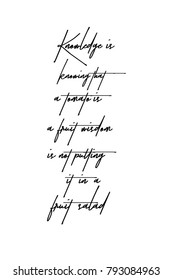 Knowledge is
knowing that
a tomato is
a fruit wisdom
is not putting
it in a
fruit salad
shutterstock.com · 793084963